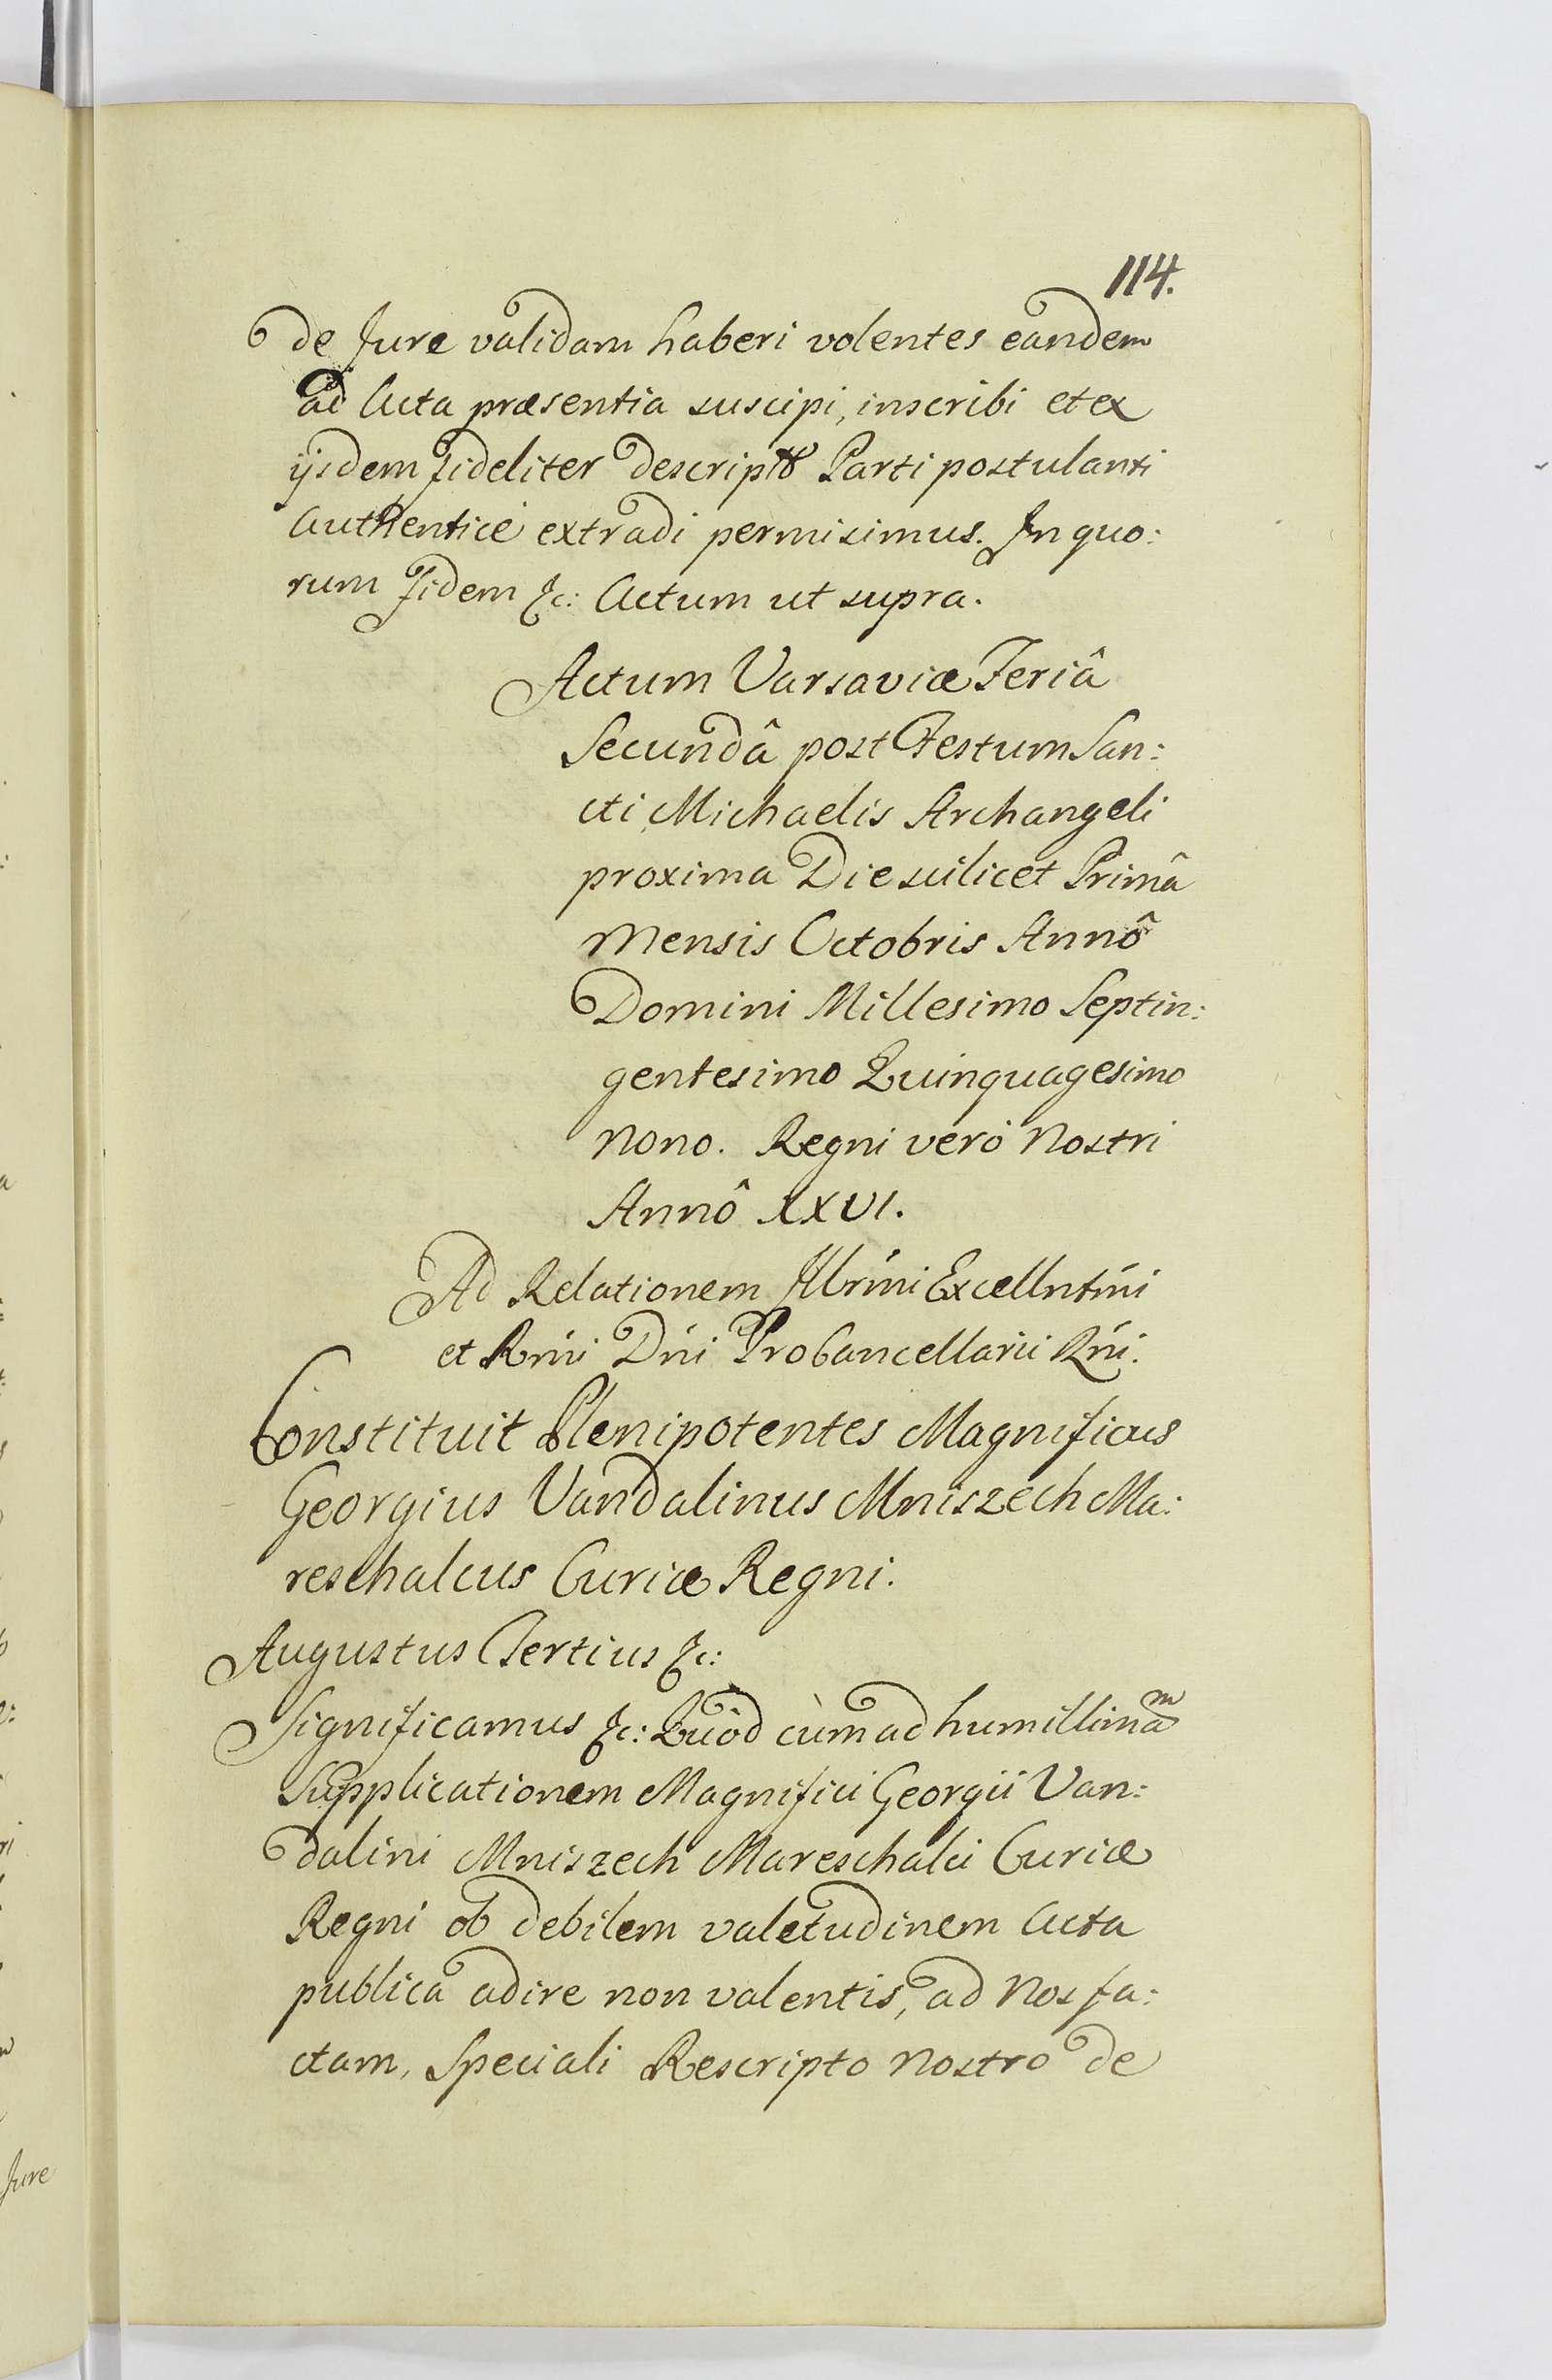 114.
de Jure validam haberi volentes eandem
ad Acta præsentia suscipi, inscribi et ex
ijsdem fideliter Parti postulanti
Authenticè extradi permisimus. In quo:
rum fidem &c: Actum ut supra.
Actum Varsaviæ Feriâ
Secundâ post Festum San:
cti Michaelis Archangeli
proxima Die scilicet Primâ
Mensis Octobris Annô
Domini Millesimo Septin:
gentesimo Quinquagesimo
Nono. Regni verò Nostri
Annô XXVI.
Ad Relationem Illrmi Excellntmi
et Rmi Dni ProCancellarii Rni.
Constituit Plenipotentes Magnificus
Georgius Vandalinus Mniszech Ma:
reschalcus Curiæ Regni.
Augustus Tertius &c:
Significamus &c: Quòd cùm ad humillimam
Supplicationem Magnifici Georgii Van:
dalini Mniszech Mareschalci Curiæ
Regni ob debilem valetudinem Acta
publica adire non valentis, ad Nos fa:
ctam, Speciali Rescripto Nostro de
Jure